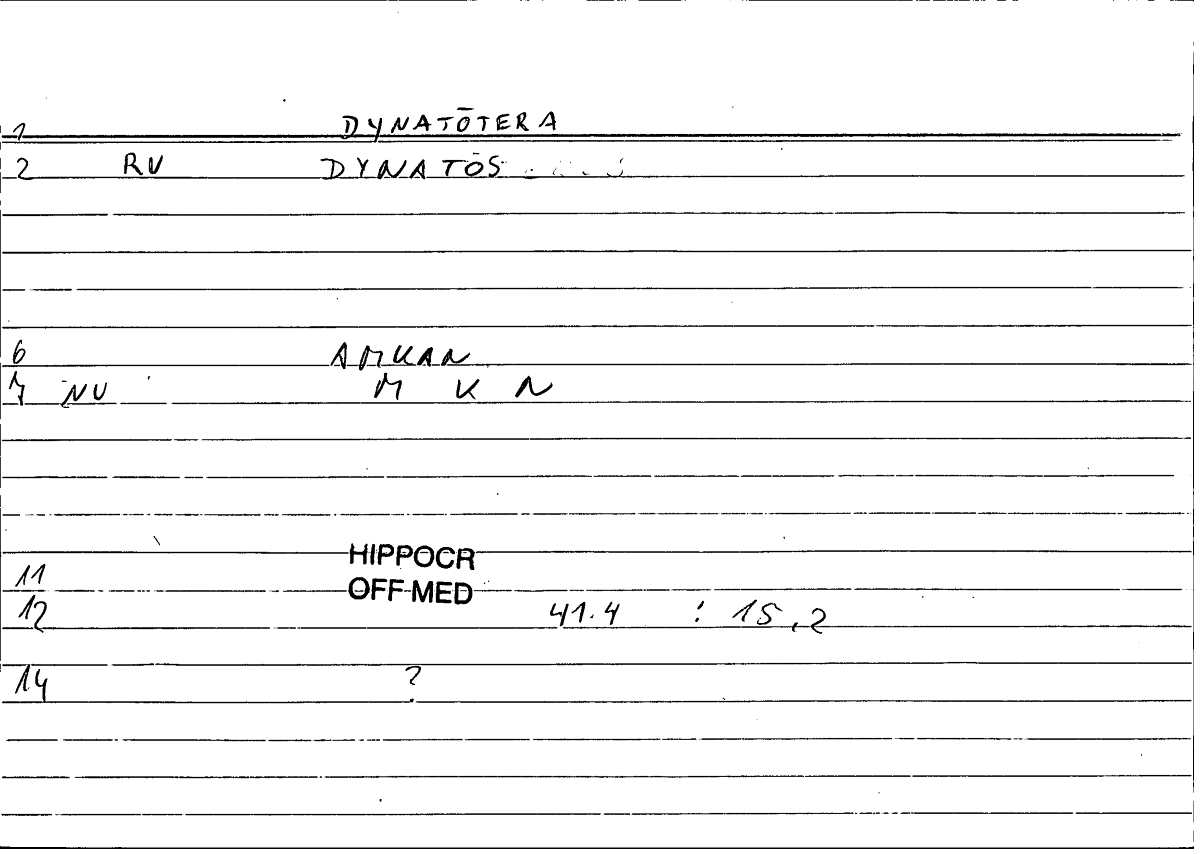 1 DYNATŌTERA
2 RV DYNATŌS
6 AMKAN
7 NV M K N
HIPPOCR
11 OFF MED
12 41.4 : 15,2
14 ?